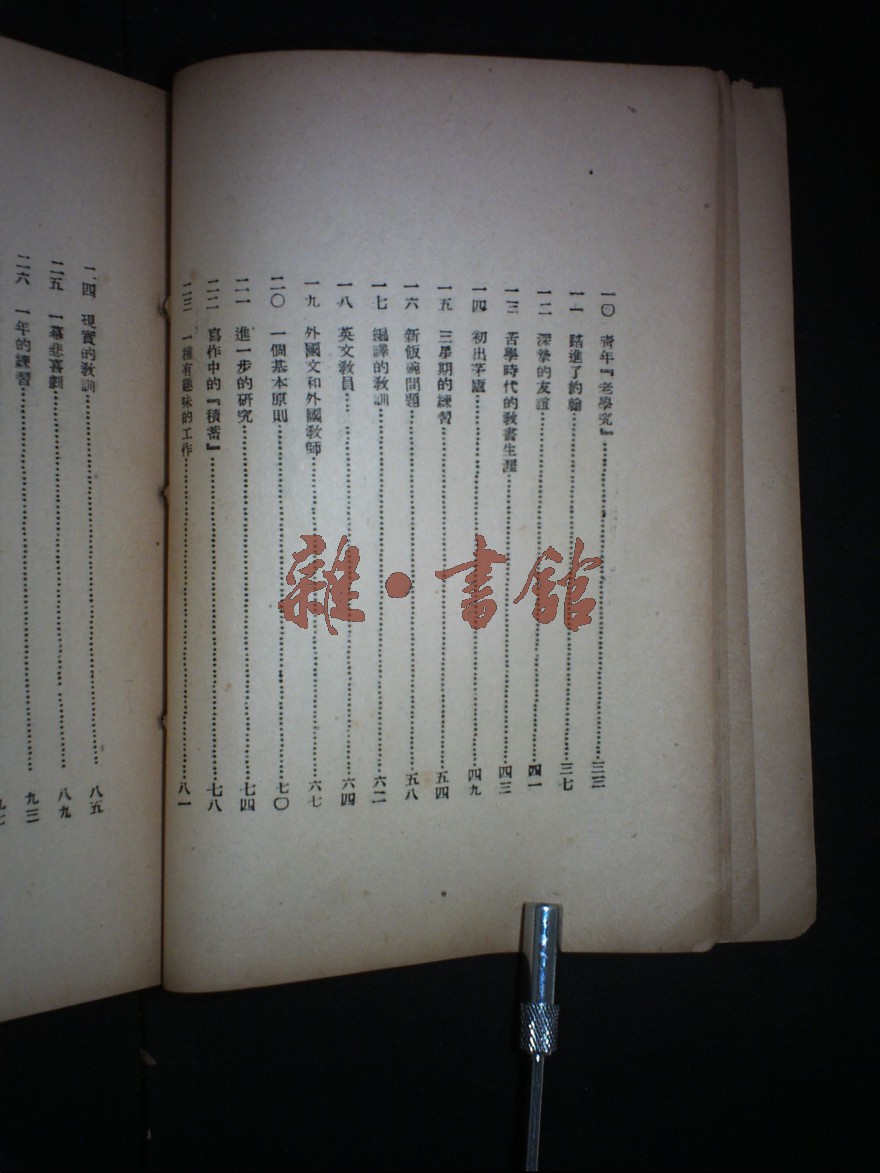 一〇 靑年『老學究』 三三
一一 踏進了約翰 三七
一二 深摯的友誼 四一
一三 苦學時代的敎書生涯 四三
一四 初出茅廬 四九
一五 三星期的練習 五四
一六 新飯碗問題 五八
一七 編譯的敎訓 六二
一八 英文敎員 六四
一九 外國文和外國敎師 六七
二〇 一個基本原則 七〇
二一 進一步的研究 七四
二二 寫作中的『積蓄』 七八
二三 一種有趣味的工作 八一
二四 現實的敎訓 八五
二五 一幕悲喜劇 八九
二六 一年的練習 九三
雜·書館